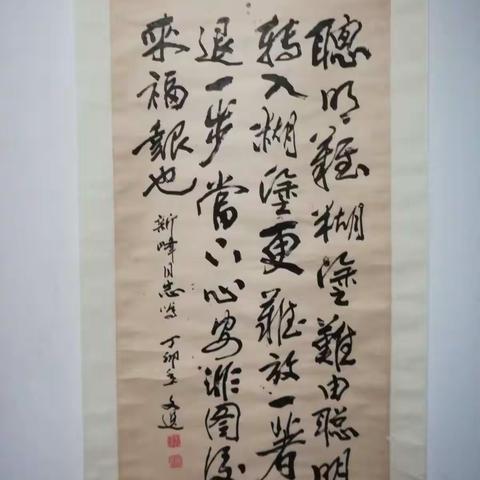 聰明難糊塗難由聰明
轉入糊塗更難放一著
退一步當下心安非圖後
來福報也
新峰同志嘱 丁卯 文選